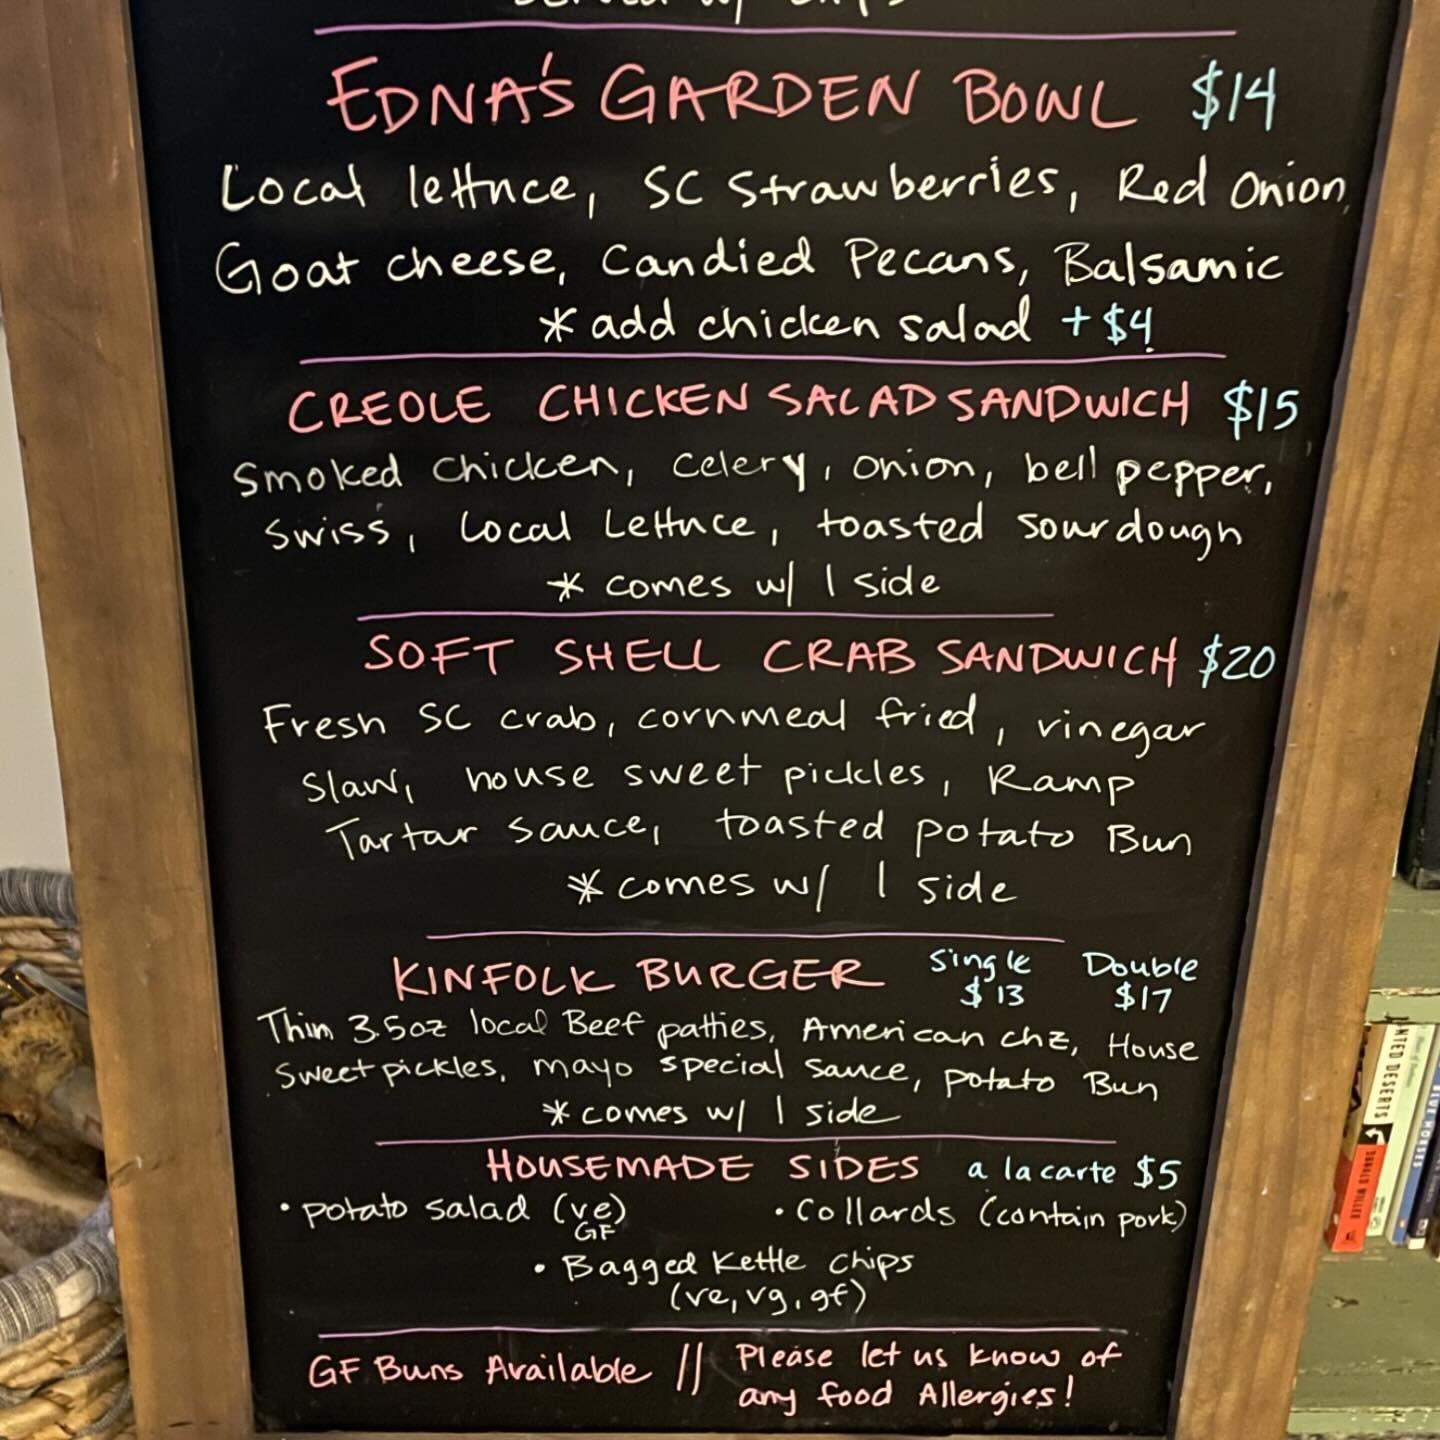 EDNA'S GARDEN BOWL $14
Local lettuce, SC Strawberries, Red Onion,
Goat cheese, Candied Pecans, Balsamic
* add chicken salad +$4
CREOLE CHICKEN SALAD SANDWICH $15
Smoked Chicken, Celery, onion, bell pepper,
Swiss, Local Lettuce, toasted Sourdough
* comes w/ 1 side
SOFT SHELL CRAB SANDWICH $20
Fresh SC crab, cornmeal fried, vinegar
Slaw, house sweet pickles, Ramp
Tartar Sauce, toasted potato Bun
* comes w/ 1 side
KINFOLK BURGER Single Double
$13 $17
Thin 3.5oz local Beef patties, American chz, House
Sweet pickles, mayo special sauce, potato Bun
* comes w/ 1 side
HOUSEMADE SIDES a la carte $5
• potato salad (ve) • Collards (contain pork)
GF
• Bagged Kettle Chips
(ve, vg, gf)
GF Buns Available // Please let us know of
any food Allergies!
DESERTS